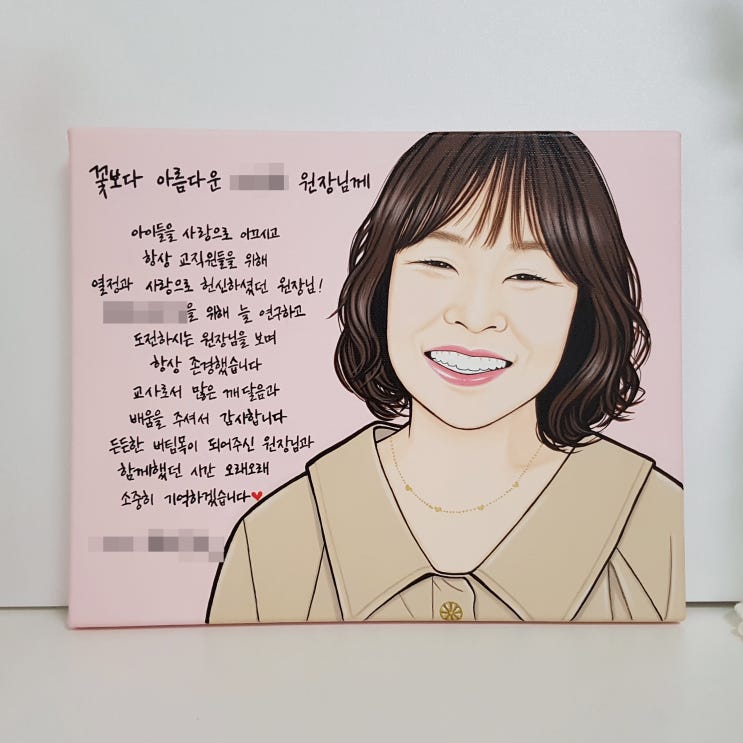 꽃보다 아름다운 원장님께
아이들을 사랑으로 이끄시고
항상 교직원들을 위해
열정과 사랑으로 헌신하셨던 원장님!
을 위해 늘 연구하고
도전하시는 원장님을 보며
항상 존경했습니다
교사로서 많은 깨달음과
배움을 주셔서 감사합니다
든든한 버팀목이 되어주신 원장님과
함께했던 시간 오래오래
소중히 기억하겠습니다♥